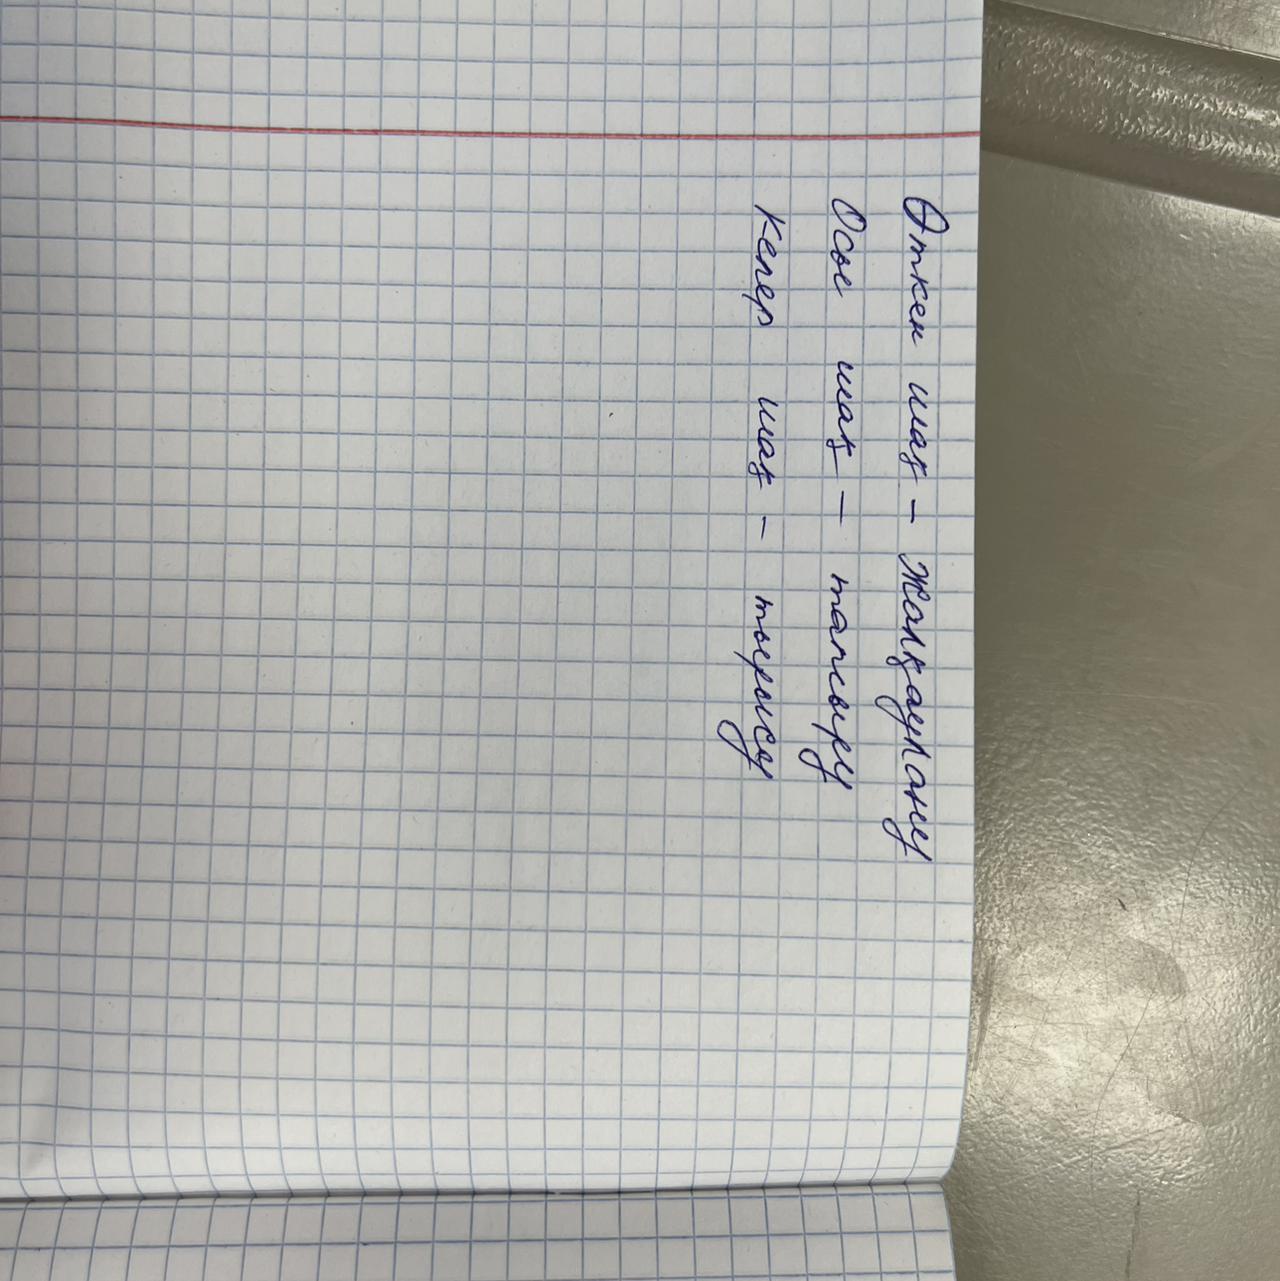 Өткен шақ - Жалқаулану
Осы шақ - тапсыру
Келер шақ - тырысу